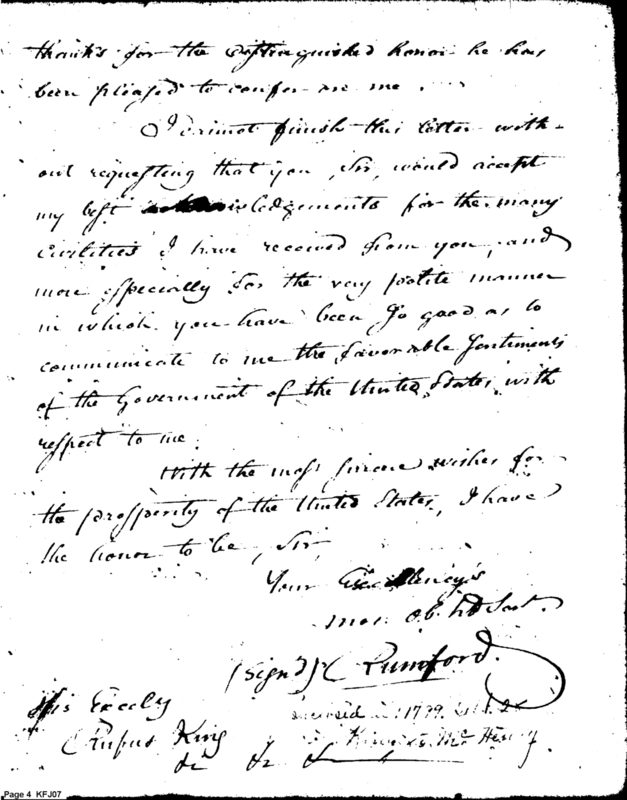 thanks for the distinguished honor he has
been pleased to confer on me.
I cannot finish this letter with-
out requesting that you, Sir, would accept
my best acknowledgements for the many
civilities I have received from you, and
more especially for the very polite manner
in which you have been so good as to
communicate to me the favorable Sentiments
of the Government of the United States, with
respect to me.
With the most sincere wishes for
the prosperity of the United States, I have
the honor to be, Sir,
Your Excellency's
mos. ob. hb Sert.
(Signd) Rumford.
His Excely
Rufus King
&c &c &c
in 1799
McHenry
Page 4 KFJ07